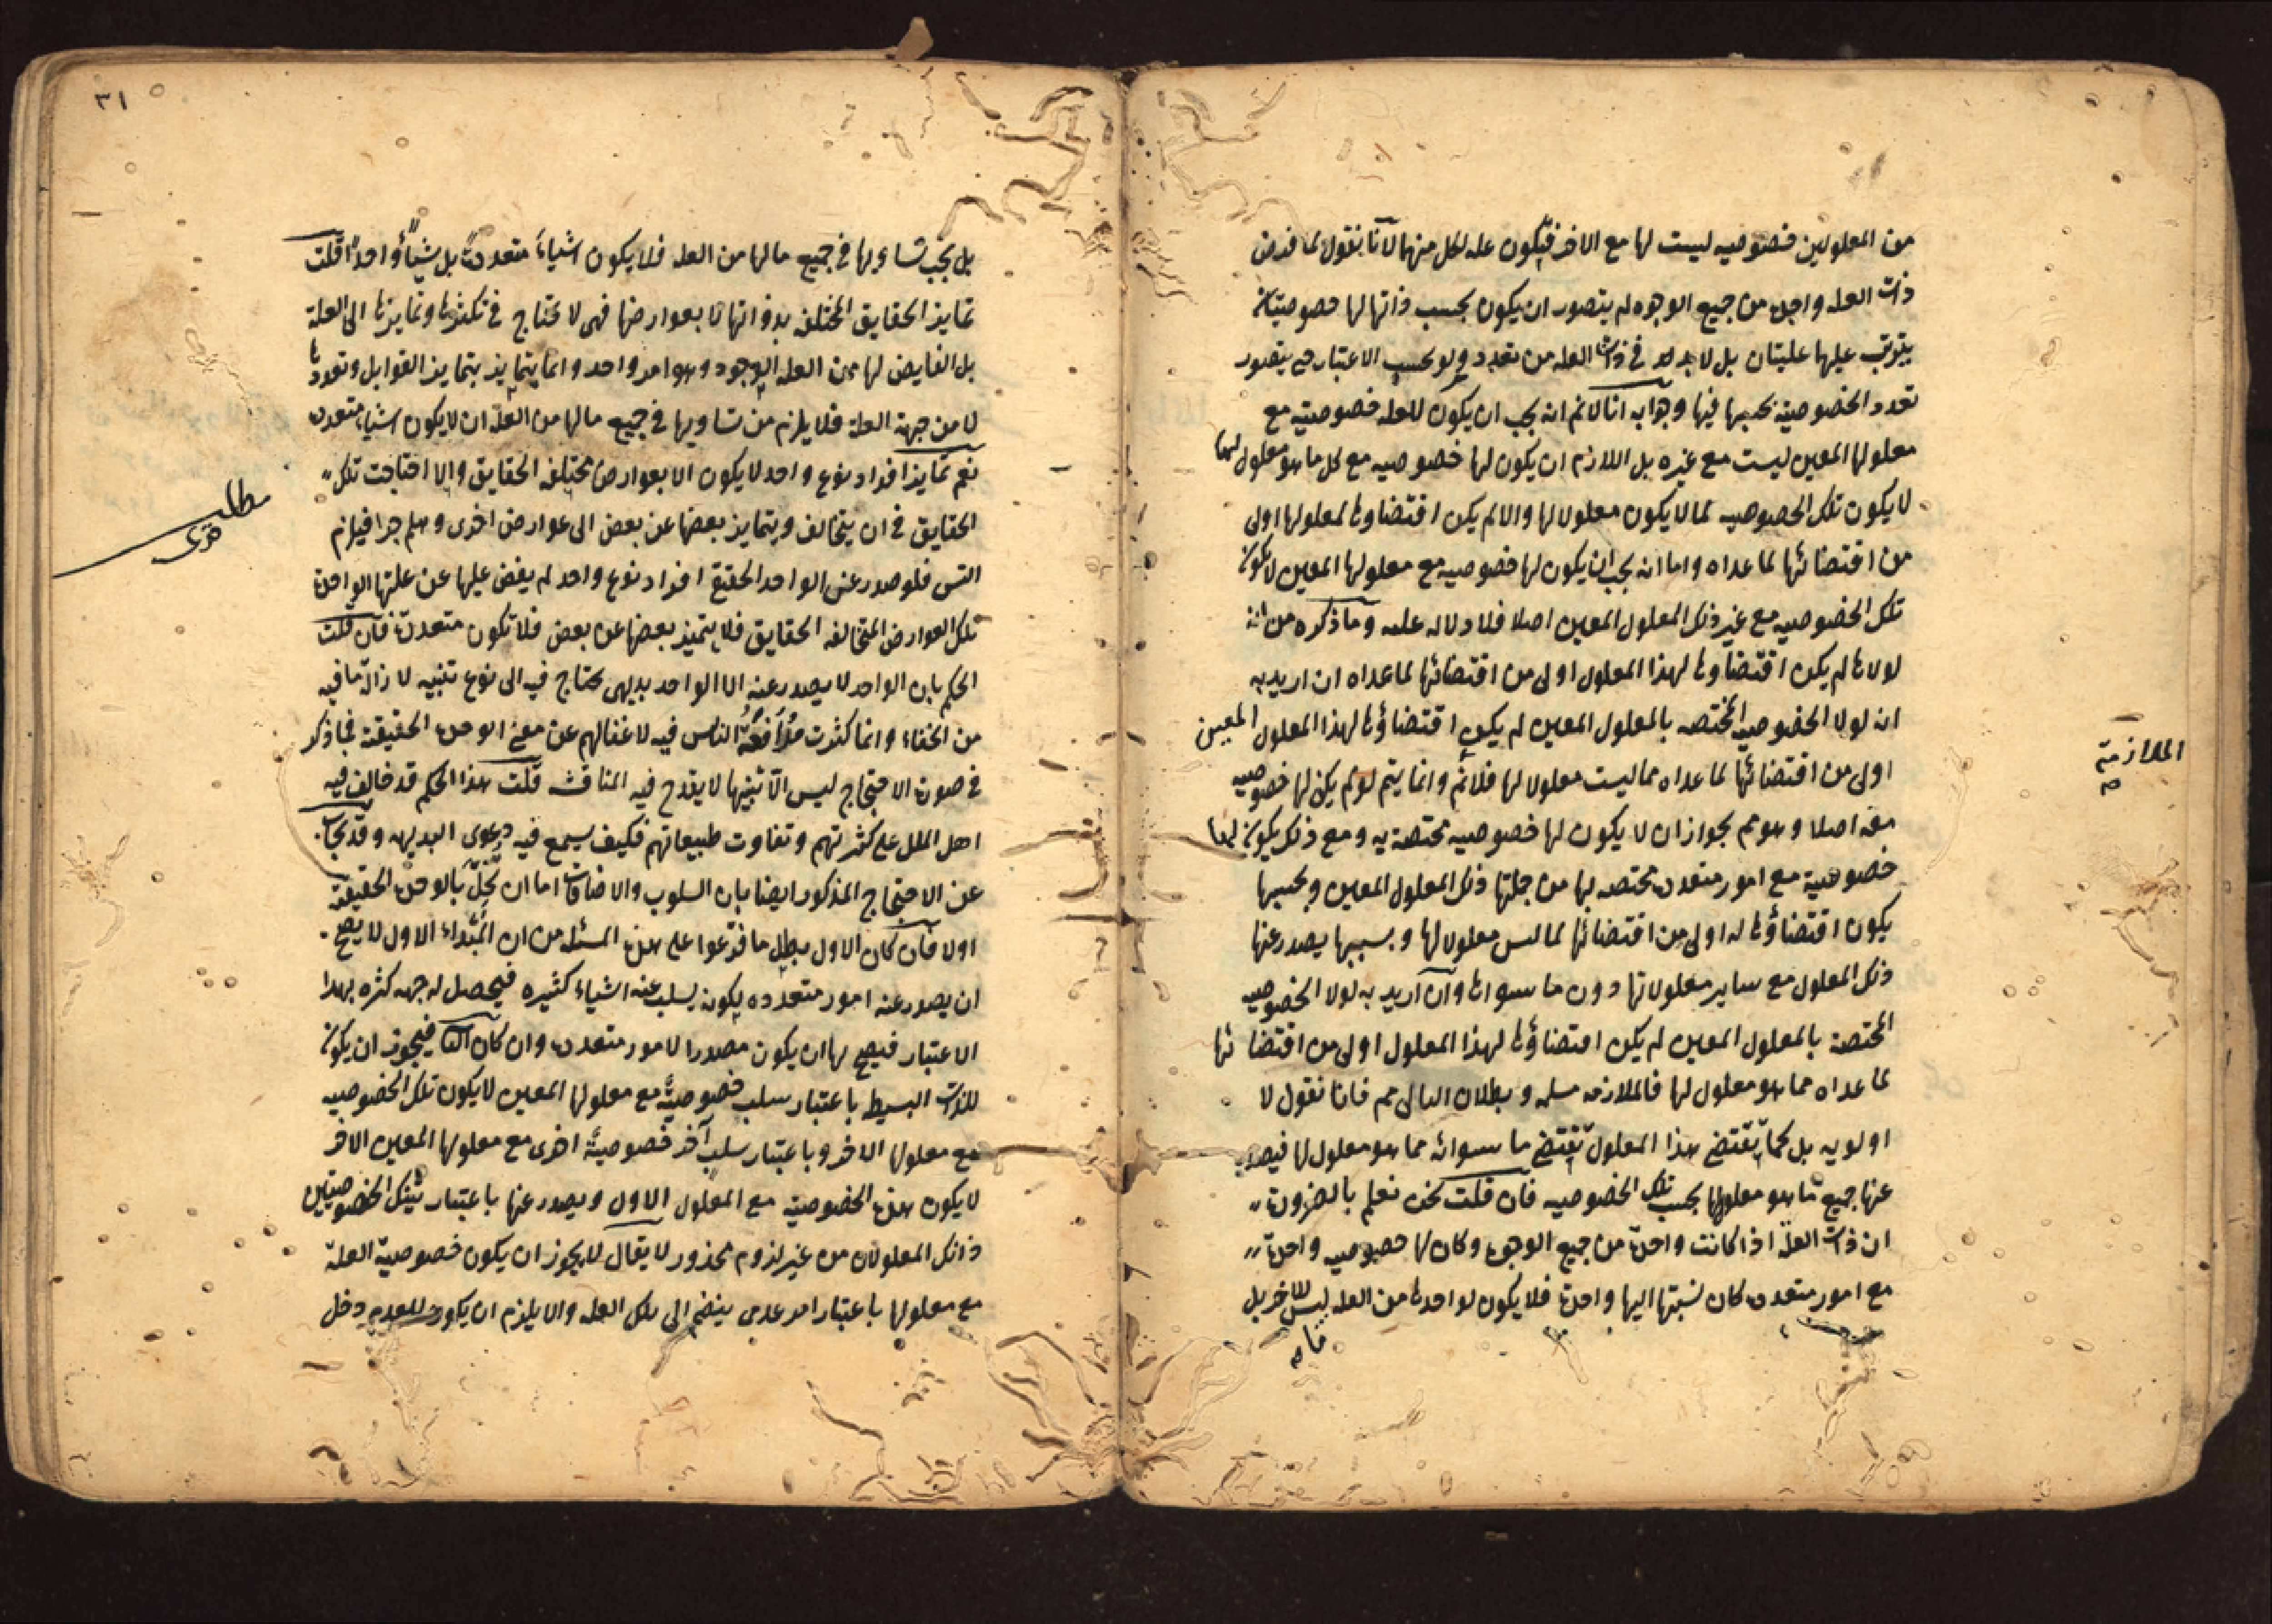 من المعلولين خصوصيه ليست لها مع الاخر فيكون عله لكل منهما لانا نقول لما فرض
ذات العله واحدة من جميع الوجوه لم يتصور ان يكون بحسب ذاتها لها خصوصيتان
يترتب عليها عليتان بل لا بد في ذات العله من تعدد ولو بحسب الاعتبار حتى يتصور
تعدد الخصوصية بحسبها فيها وجوابه انا لانم انه يجب ان يكون للعله خصوصية مع
معلولها المعين ليست مع غيره بل اللازم ان يكون لها خصوصيه مع كل ما هو معلول لها
لا يكون تلك الخصوصيه لما لا يكون معلولا لها والا لم يكن اقتضاوها لمعلولها اولى
من اقتضائها لما عداه واما انه يجب ان يكون لها خصوصيه مع معلولها المعين لا يكون
تلك الخصوصيه مع غير ذلك المعلول المعين اصلا فلا دلاله عليه وما ذكره من انه
لولاها لم يكن اقتضاوها لهذا المعلول اولى من اقتضائها لما عداه ان اريد به
انه لولا الخصوصيه المختصه بالمعلول المعين لم يكن اقتضاؤها لهذا المعلول المعين
اولى من اقتضائها لما عداه مما ليست معلولا لها فلانم وانما يتم لو لم يكن لها خصوصيه
معه اصلا وهو مم بجواز ان لا يكون لها خصوصيه مختصة به ومع ذلك يكون لها
خصوصية مع امور متعددة مختصه بها من جملتها ذلك المعلول المعين وبحسبها
يكون اقتضاؤها له اولى من اقتضائها لما ليس معلولا لها وبسببها يصدر عنها
ذلك المعلول مع ساير معلولاتها دون ما سواها وان اريد به لولا الخصوصيه
المختصة بالمعلول المعين لم يكن اقتضاؤها لهذا المعلول اولى من اقتضائها
لما عداه مما هو معلول لها فالملازمه مسلمه وبطلان التالى مم فانا نقول لا
اولويه بل كما يقتضى هذا المعلول يقتضى ما سواه مما هو معلول لها فيصدر
عنها جميع ما هو معلولها بحسب تلك الخصوصيه فان قلت نحن نعلم بالضرورة
ان ذات العلة اذا كانت واحدة من جميع الوجوه وكان لها خصوصيه واحدة
مع امور متعددة كان نسبتها اليها واحدة فلا يكون لواحد منها من العله ليس للاخر بل
الملازمة
٣١
بل يجب تساويها في جميع ما لها من العله فلا يكون اشياءَ متعددةً بل شيأً واحداً قلت
تمايز الحقايق المختلفه بذواتها لا بعوارضها فهى لا تحتاج في تكثرها وتمايزها الى العلة
بل الفايض لها من العله الوجود وهو امر واحد وانما يتمايز بتمايز القوابل وتعددها
لا من جهة العلة فلا يلزم من تساويها في جميع ما لها من العلة ان لا يكون اشياء متعددة
نعم تمايز افراد نوع واحد لا يكون الا بعوارض مختلفه الحقايق والا احتاجت تلك
الحقايق في ان يتخالف ويتمايز بعضها عن بعض الى عوارض اخرى وهلم جرا فيلزم
التس فلو صدر عن الواحد الحقيقى افراد نوع واحد لم يفض عليها عن علتها الواحدة
تلك العوارض المتخالفه الحقايق فلا يتميز بعضها عن بعض فلا تكون متعددة فان قلت
الحكم بان الواحد لا يصدر عنه الا الواحد بديهى يحتاج فيه الى نوع تنبيه لازالة ما فيه
من الخفاء وانما كثرت مدافعة الناس فيه لاغفالهم عن معنى الوحدة الحقيقة فما ذكر
في صورة الاحتجاج ليس الا تنبيها لا يقدح فيه المناقشه قلت هذا الحكم قد خالف فيه
اهل الملل على كثرتهم وتفاوت طبيعاتهم فكيف يسمع فيه دعوى البديهه وقد يجاب
عن الاحتجاج المذكور ايضا بان السلوب والاضافات اما ان يخلّ بالوحدة الحقيقة
اولا فان كان الاول بطل ما فرعوا على هذه المسئله من ان المبداء الاول لا يصح
ان يصدر عنه امور متعدده بكونه يسلب عنه اشياء كثيره فيحصل له جهه كثره بهذا
الاعتبار فيصح لها ان يكون مصدرا لامور متعددة وان كان الثانى فيجوز ان يكون
للذات البسيط باعتبار سلب خصوصيةً مع معلولها المعين لا يكون تلك الخصوصيه
مع معلولها الاخر وباعتبار سلب آخر خصوصيةً اخرى مع معلولها المعين الاخر
لا يكون هذه الخصوصية مع المعلول الاول ويصدر عنها باعتبار تينك الخصوصيتين
ذانك المعلولان من غير لزوم محذور لا يقال لا يجوز ان يكون خصوصية العلة
مع معلولها باعتبار امر عدمى ينضم الى تلك العله والا يلزم ان يكون للعدم دخل
مطلب